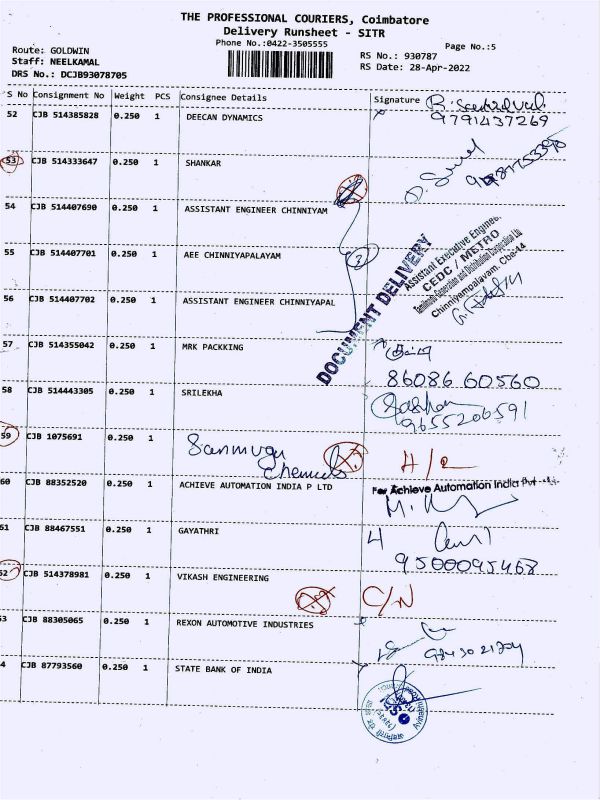 THE PROFESSIONAL COURIERS, Coimbatore
Delivery Runsheet - SITR
Phone No.:0422-3505555
Page No.:5
Route: GOLDWIN
Staff: NEELKAMAL
DRS No.: DCJB93078705
RS No.: 930787
RS Date: 28-Apr-2022
S No Consignment No Weight PCS Consignee Details Signature
52 CJB 514385828 0.250 1 DEECAN DYNAMICS
9791437269
53 CJB 514333647 0.250 1 SHANKAR
54 CJB 514407690 0.250 1 ASSISTANT ENGINEER CHINNIYAM
55 CJB 514407701 0.250 1 AEE CHINNIYAPALAYAM
3
DOCUMENT DELIVERY
Assistant Executive Enginee
CEDC / METRO
Tamilnadu Generation and Distribution Corporation Ltd
Chinniyampalayam, Cbe-14
56 CJB 514407702 0.250 1 ASSISTANT ENGINEER CHINNIYAPAL
57 CJB 514355042 0.250 1 MRK PACKKING
86086 60560
58 CJB 514443305 0.250 1 SRILEKHA
9655200591
59 CJB 1075691 0.250 1 Sanmuga
Chemicals
60 CJB 88352520 0.250 1 ACHIEVE AUTOMATION INDIA P LTD
For Achieve Automation India Pvt
61 CJB 88467551 0.250 1 GAYATHRI
9500095468
52 CJB 514378981 0.250 1 VIKASH ENGINEERING
C/N
3 CJB 88305065 0.250 1 REXON AUTOMOTIVE INDUSTRIES
4 CJB 87793560 0.250 1 STATE BANK OF INDIA